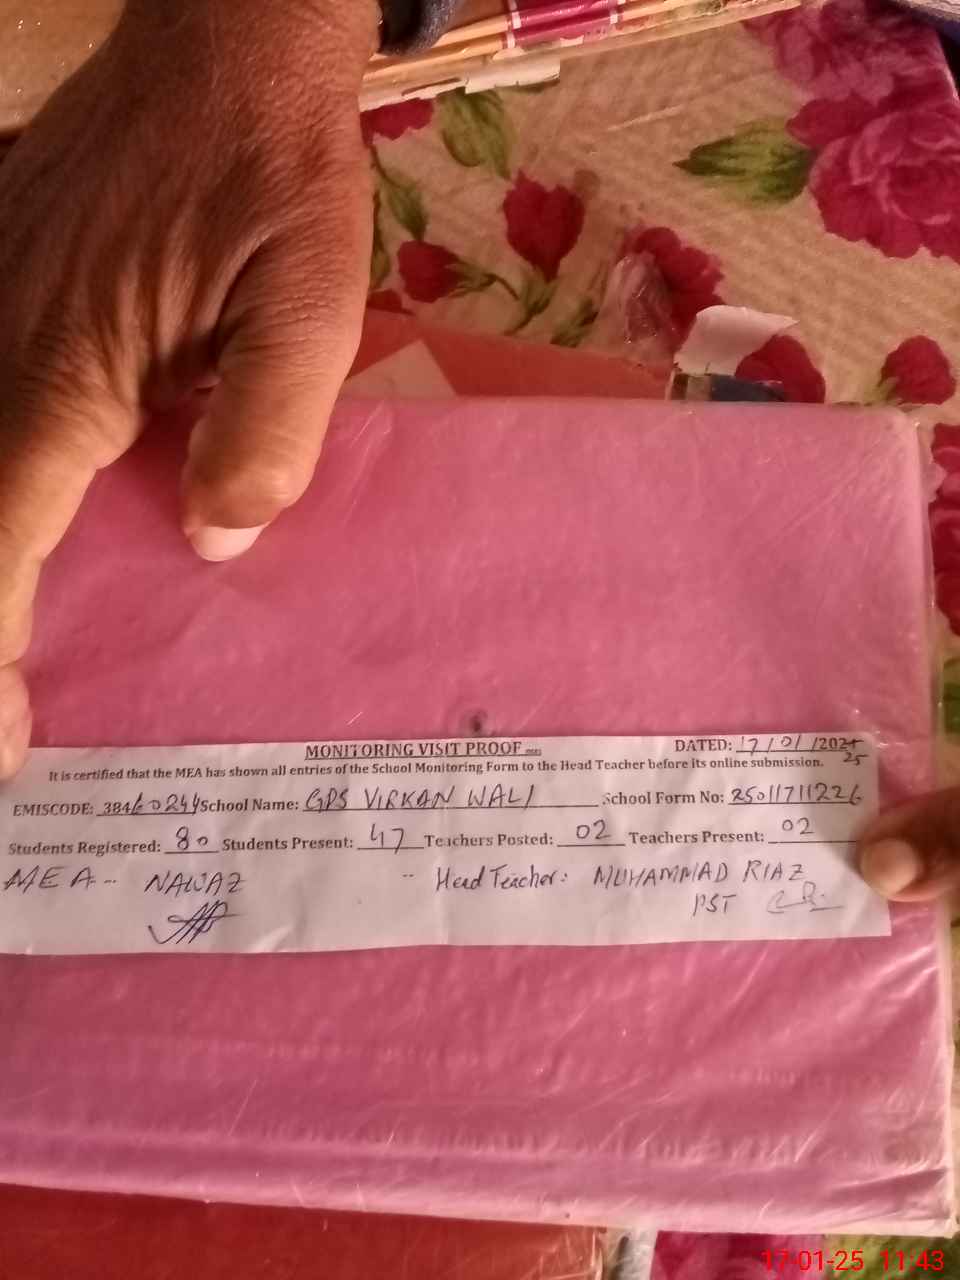 MONITORING VISIT PROOF
DATED: 17/01/2024
25
It is certified that the MEA has shown all entries of the School Monitoring Form to the Head Teacher before its online submission.
EMISCODE: 38460244 School Name: GPS VIRKAN WALI School Form No: 25011711226
Students Registered: 80 Students Present: 47 Teachers Posted: 02 Teachers Present: 02
MEA -- NAWAZ -- Head Teacher: MUHAMMAD RIAZ
PST
17-01-25 11:43